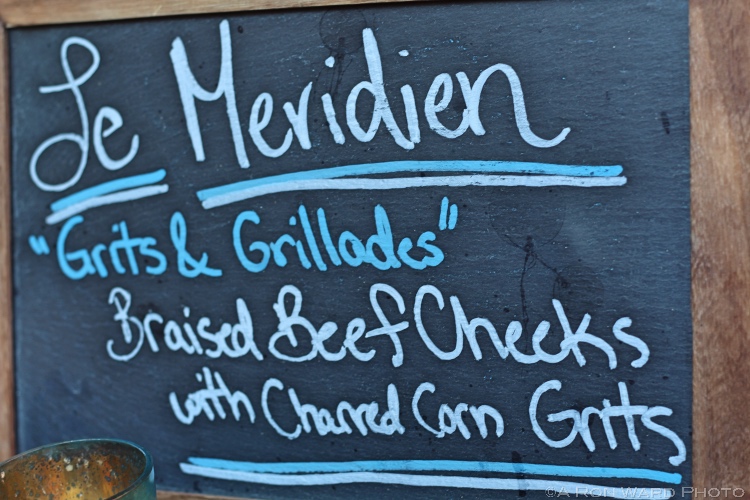 Le Meridien
"Grits & Grillades"
Braised Beef Cheeks
with Charred Corn Grits
©A RON WARD PHOTO